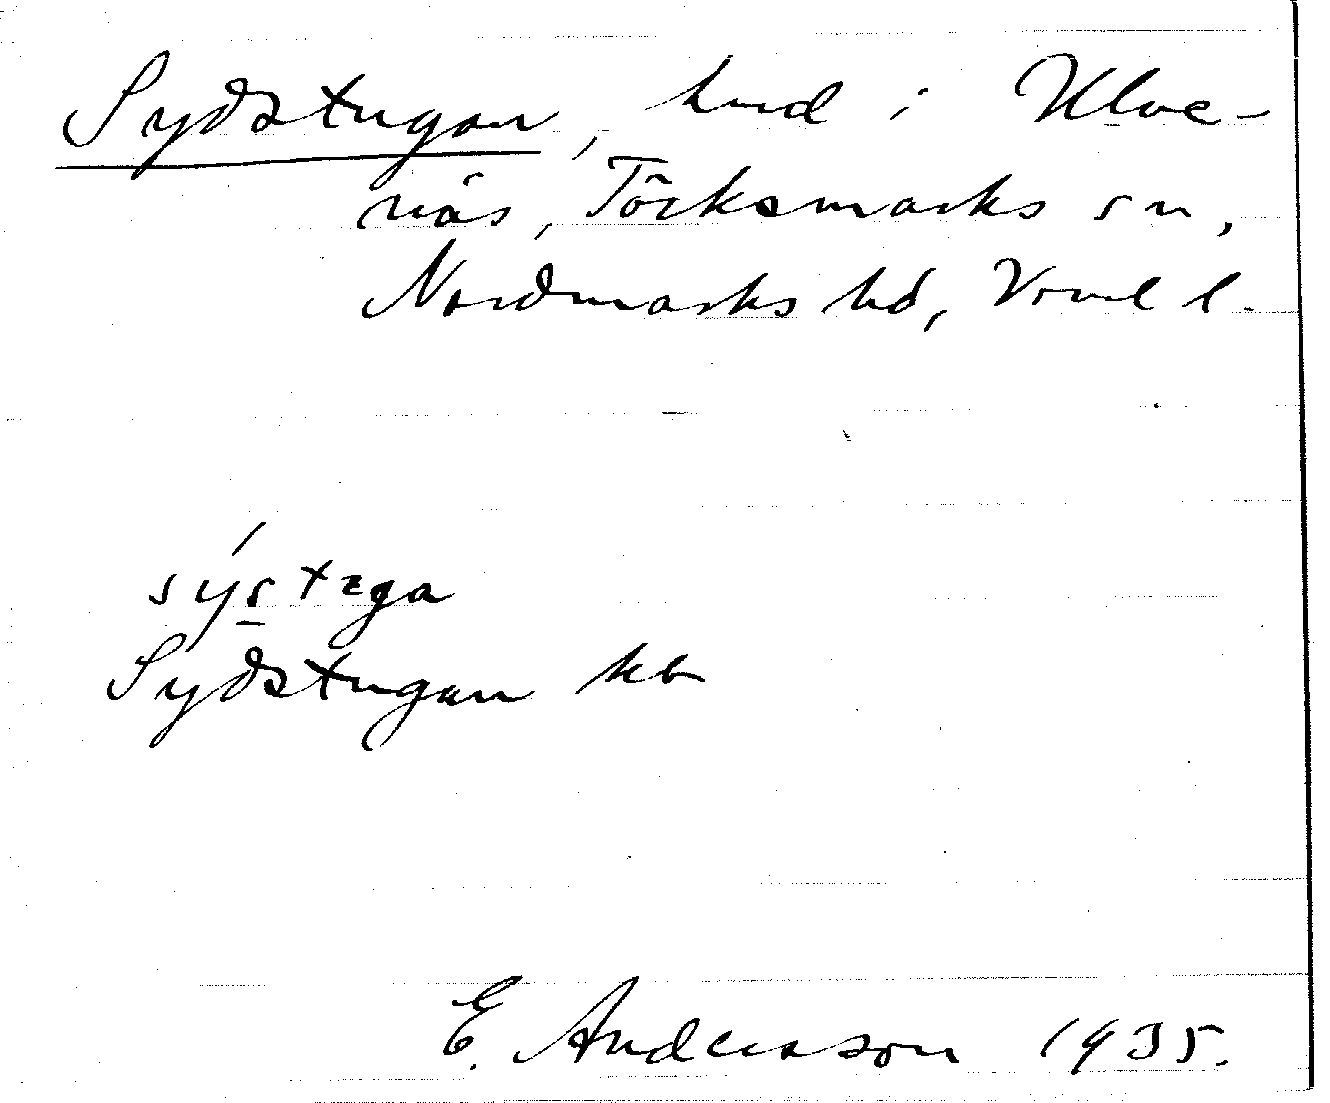 Sydstugan, hmd i Ulve-
näs, Töcksmarks sn,
Nordmarks hd, Vrml l.
sýstɛga
Sydstugan kb
E. Andersson 1935.